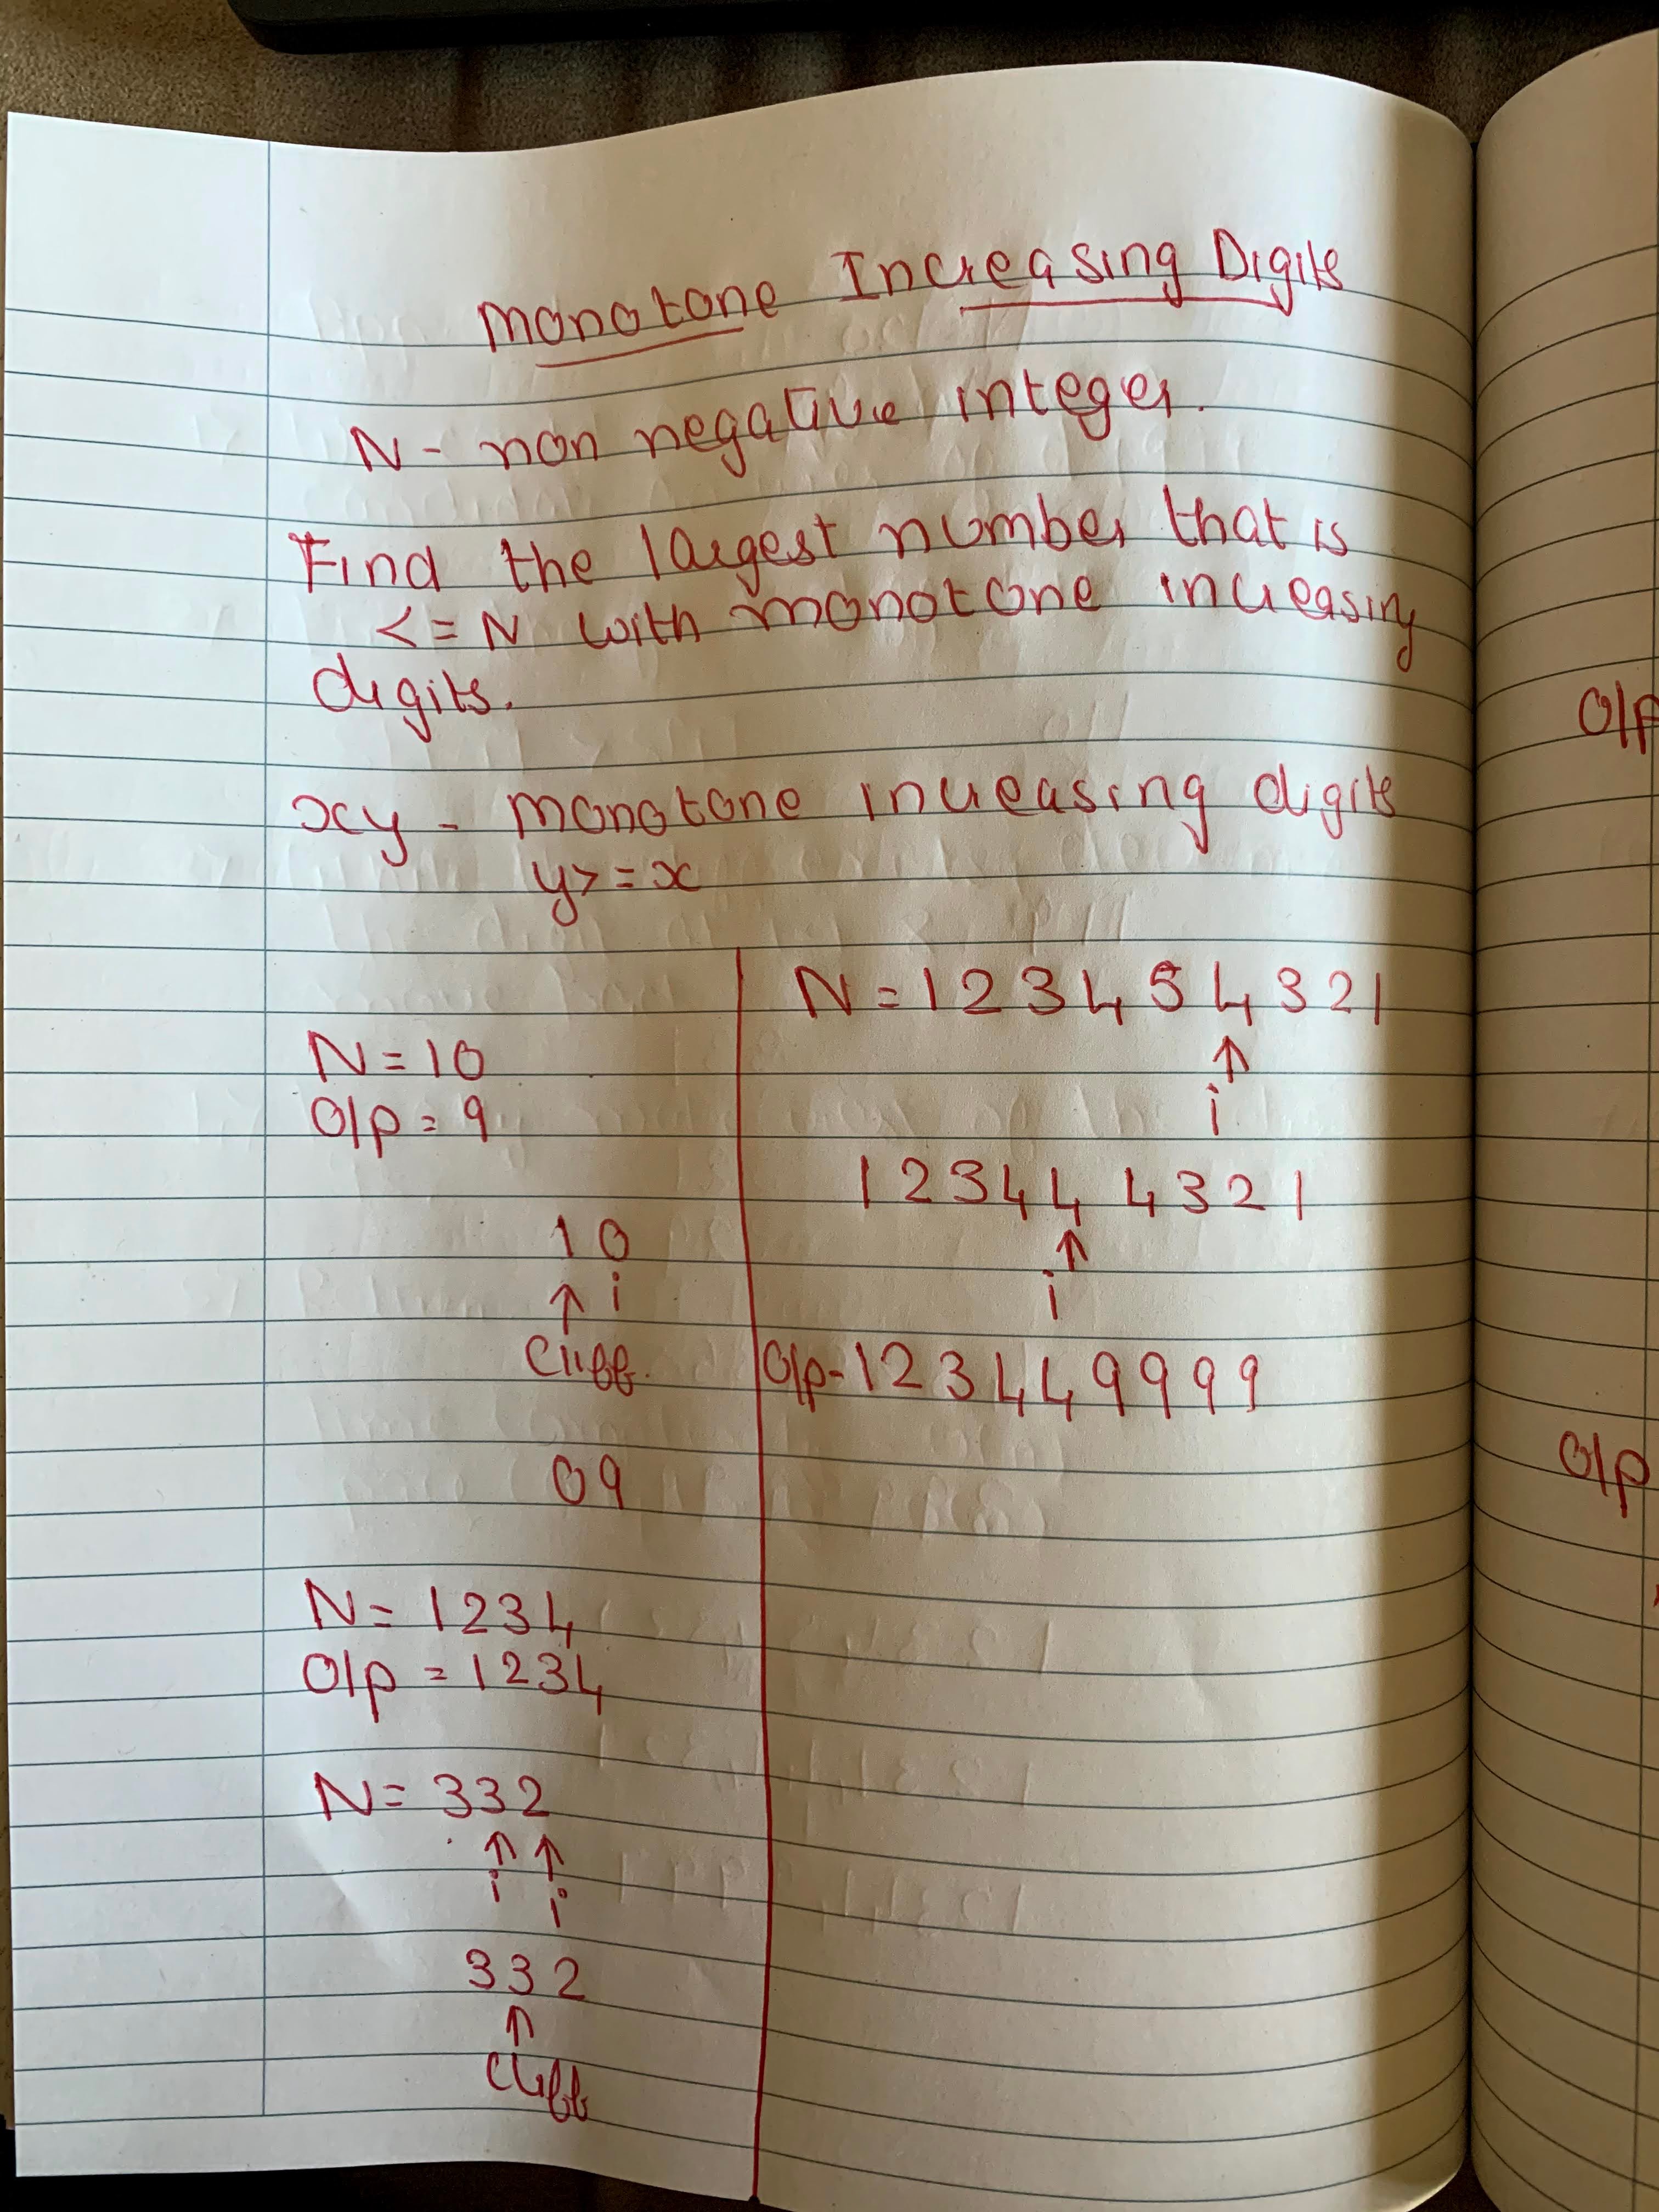 Monotone Increasing Digits
N - non negative integer.
Find the largest number that is
<= N with monotone increasing
digits.
xy - monotone increasing digits
y>=x
N = 10
O/p = 9
1 0
↑ i
Cliff.
09
N = 1234
O/p = 1234
N = 332
↑ ↑
i i
332
↑
Cliff
N = 1 2 3 4 5 4 3 2 1
↑
i
1 2 3 4 4 4 3 2 1
↑
i
O/p - 1 2 3 4 4 9 9 9 9
O/p
O/p